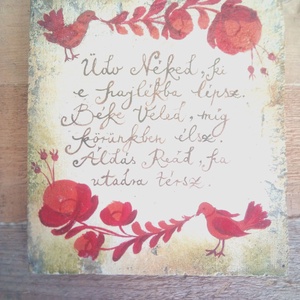 Üdv Néked, ki
e hajlékba lépsz.
Béke Veled, míg
körünkben élsz.
Áldás Reád, ha
utadra térsz.